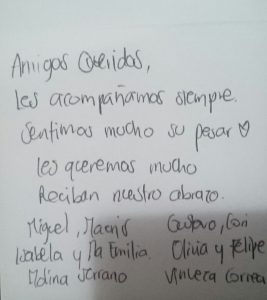 Amigos Queridos,
les acompañamos siempre.
Sentimos mucho su pesar ♡
les queremos mucho
Reciban nuestro abrazo.
Miguel, Gustavo,
Isabela y Ma Emilia. Olivia y Felipe
Molina Serrano Correa